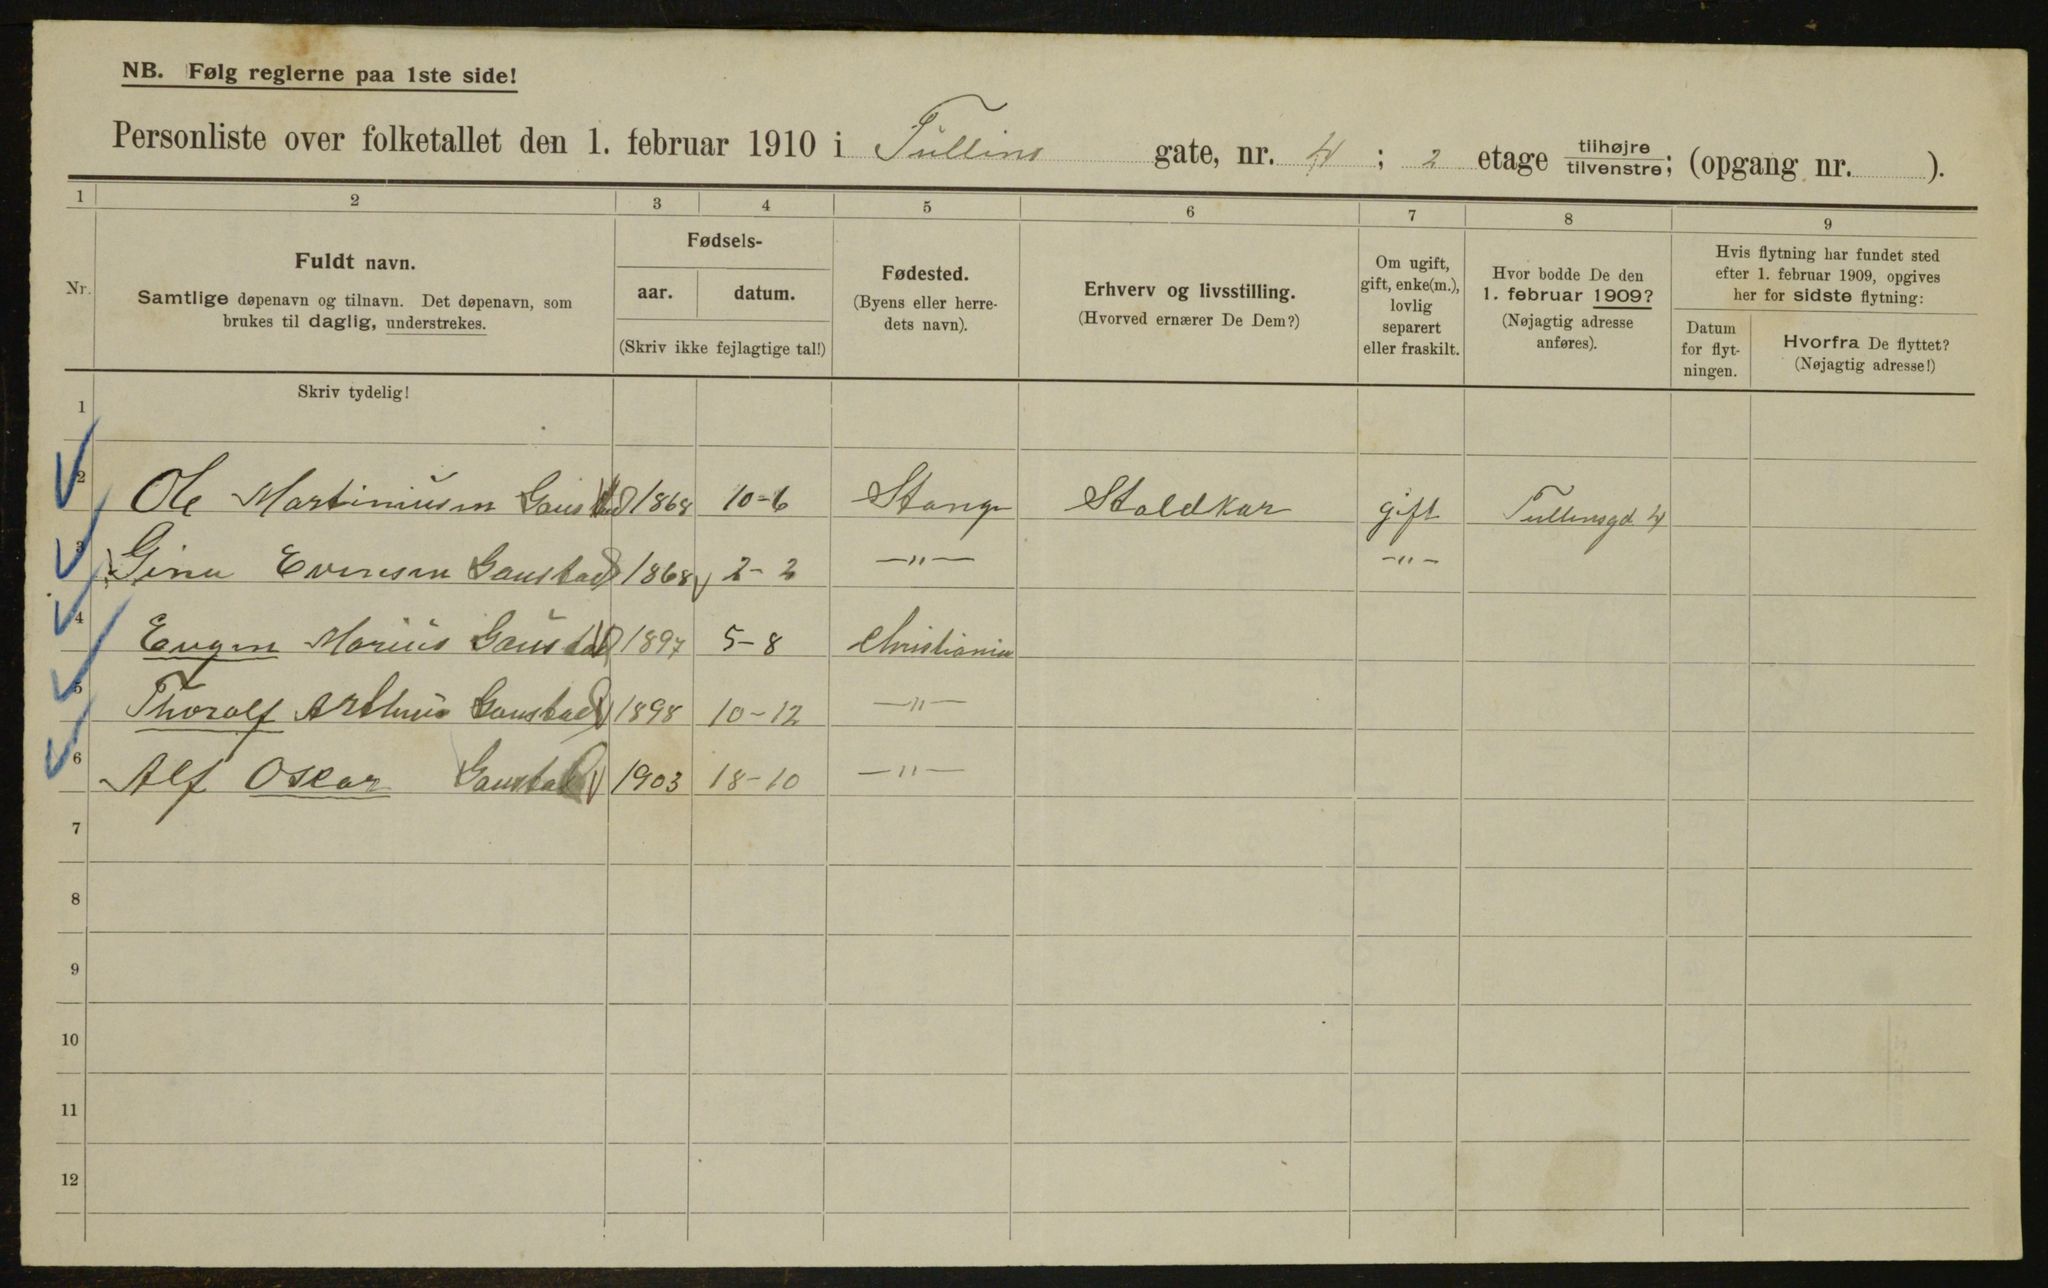 NB. Følg reglerne paa 1ste side!
Personliste over folketallet den 1. februar 1910 i Tullins gate, nr. 4; 2 etage tilhøjre/tilvenstre; (opgang nr. ).
1 2 3 4 5 6 7 8 9
Nr.
Fuldt navn.
Samtlige døpenavn og tilnavn. Det døpenavn, som
brukes til daglig, understrekes.
Fødsels-
aar. datum.
(Skriv ikke fejlagtige tal!)
Fødested.
(Byens eller herre-
dets navn).
Erhverv og livsstilling.
(Hvorved ernærer De Dem?)
Om ugift,
gift, enke(m.),
lovlig
separert
eller fraskilt.
Hvor bodde De den
1. februar 1909?
(Nøjagtig adresse
anføres).
Hvis flytning har fundet sted
efter 1. februar 1909, opgives
her for sidste flytning:
Datum
for flyt-
ningen.
Hvorfra De flyttet?
(Nøjagtig adresse!)
Skriv tydelig!
1
2 Ole Martiniusen Gaustad 1868 10-6 Stange Staldkar gift Tullinsgd 4
3 Gina Evensen Gaustad 1868 2-2 —"— —"—
4 Eugen Marius Gaustad 1897 5-8 Christiania
5 Thoralf Arthur Gaustad 1898 10-12 —"—
6 Alf Oskar Gaustad 1903 18-10 —"—
7
8
9
10
11
12